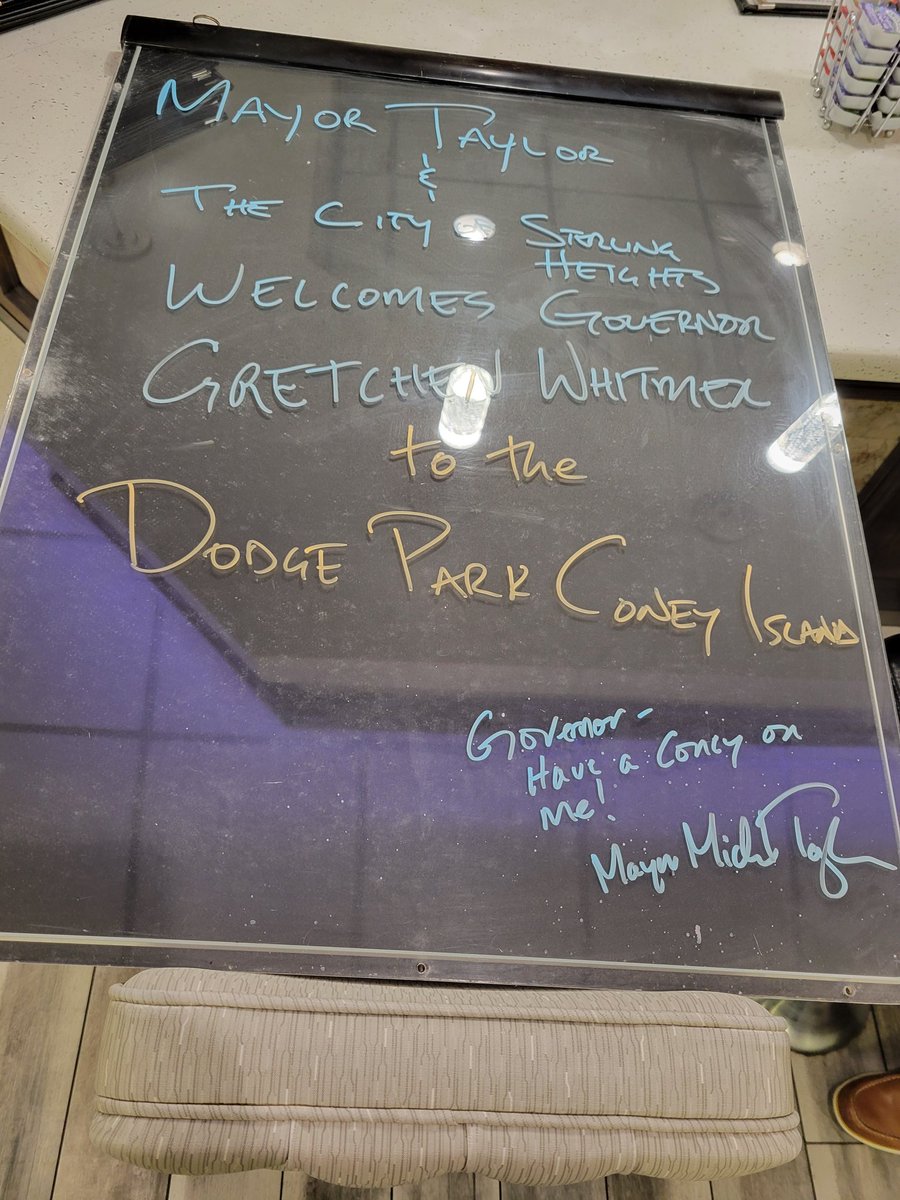 MAYOR TAYLOR
&
THE CITY OF STERLING
HEIGHTS
WELCOMES GOVERNOR
GRETCHEN WHITMER
to the
DODGE PARK CONEY ISLAND
Governor-
Have a Coney on
me!
Mayor Michael Taylor